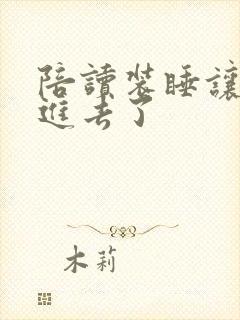 陪讀裝睡讓
進去了
木莉